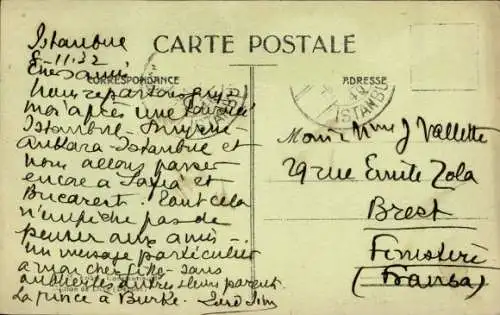 CARTE POSTALE
CORRESPONDANCE
ADRESSE
Istanbul
8-11.32
Chers amis
Nous repartons après
mois après une tournée
Istanbul-Smyrne-
Ankara-Istanbul et
nous allons passer
encore à Sofia et
Bucarest. Tout cela
n'empêche pas de
penser aux amis -
Un message particulier
à mon cher - sans
oublier les autres et leurs parents
La pince à Burke.
ISTANBUL
Monsr & Mme J Vallette
29 rue Emile Zola
Brest
Finistère
(Fransa)